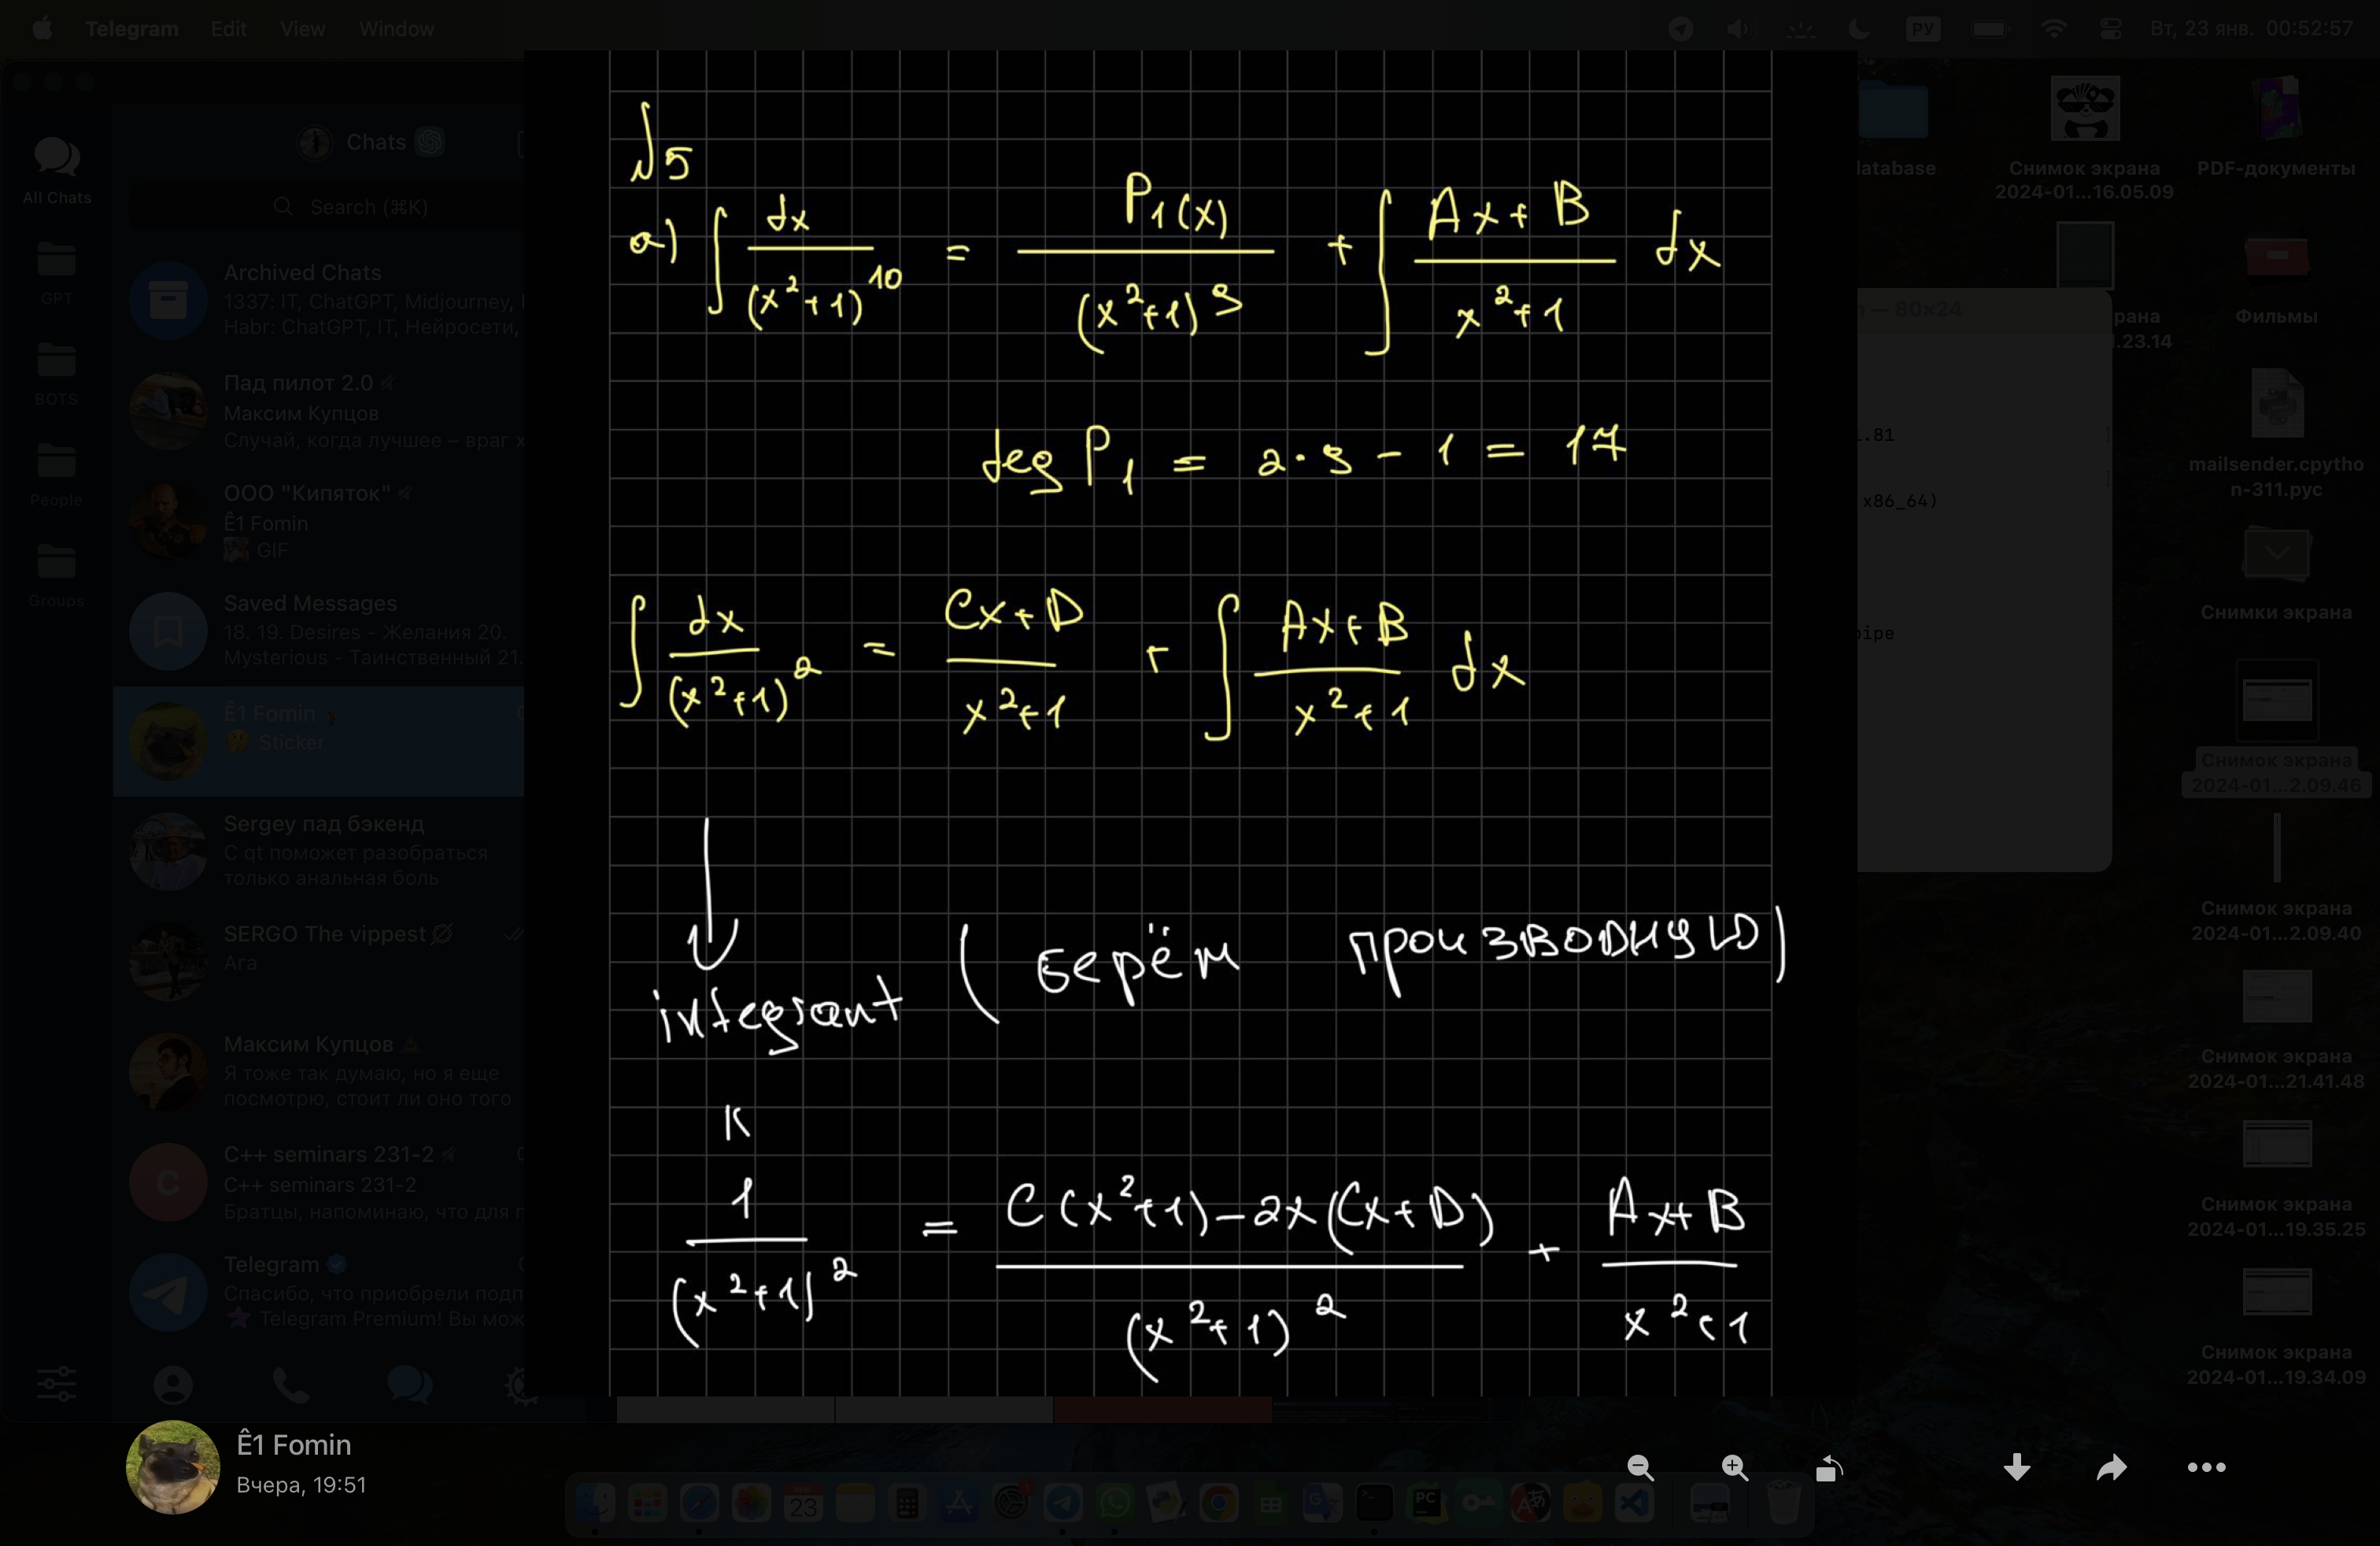 Telegram Edit View Window
РУ Вт, 23 янв. 00:52:57
Chats
Search (⌘K)
All Chats
GPT
BOTS
People
Groups
Archived Chats
1337: IT, ChatGPT, Midjourney,
Habr: ChatGPT, IT, Нейросети,
Пад пилот 2.0
Максим Купцов
Случай, когда лучшее – враг х
ООО "Кипяток"
Ê1 Fomin
GIF
Saved Messages
18. 19. Desires - Желания 20.
Mysterious - Таинственный 21.
Ê1 Fomin
🤔 Sticker
Sergey пад бэкенд
С qt поможет разобраться
только анальная боль
SERGO The vippest
Ага
Максим Купцов
Я тоже так думаю, но я еще
посмотрю, стоит ли оно того
C++ seminars 231-2
C
C++ seminars 231-2
Братцы, напоминаю, что для г
Telegram
Спасибо, что приобрели подп
Telegram Premium! Вы мож
№5
а) ∫ dx/(x²+1)¹⁰ = P₁(x)/(x²+1)⁹ + ∫ (Ax+B)/(x²+1) dx
deg P₁ = 2·9 − 1 = 17
∫ dx/(x²+1)² = (Cx+D)/(x²+1) + ∫ (Ax+B)/(x²+1) dx
integrant (берём производную)
1/(x²+1)² = (C(x²+1)−2x(Cx+D))/(x²+1)² + (Ax+B)/(x²+1)
database
Снимок экрана
2024-01...16.05.09
PDF-документы
— 80x24
рана
.23.14
Фильмы
.81
mailsender.cpytho
n-311.pyc
x86_64)
Снимки экрана
pipe
Снимок экрана
2024-01...2.09.46
Снимок экрана
2024-01...2.09.40
Снимок экрана
2024-01...21.41.48
Снимок экрана
2024-01...19.35.25
Снимок экрана
2024-01...19.34.09
Ê1 Fomin
Вчера, 19:51
23
PC